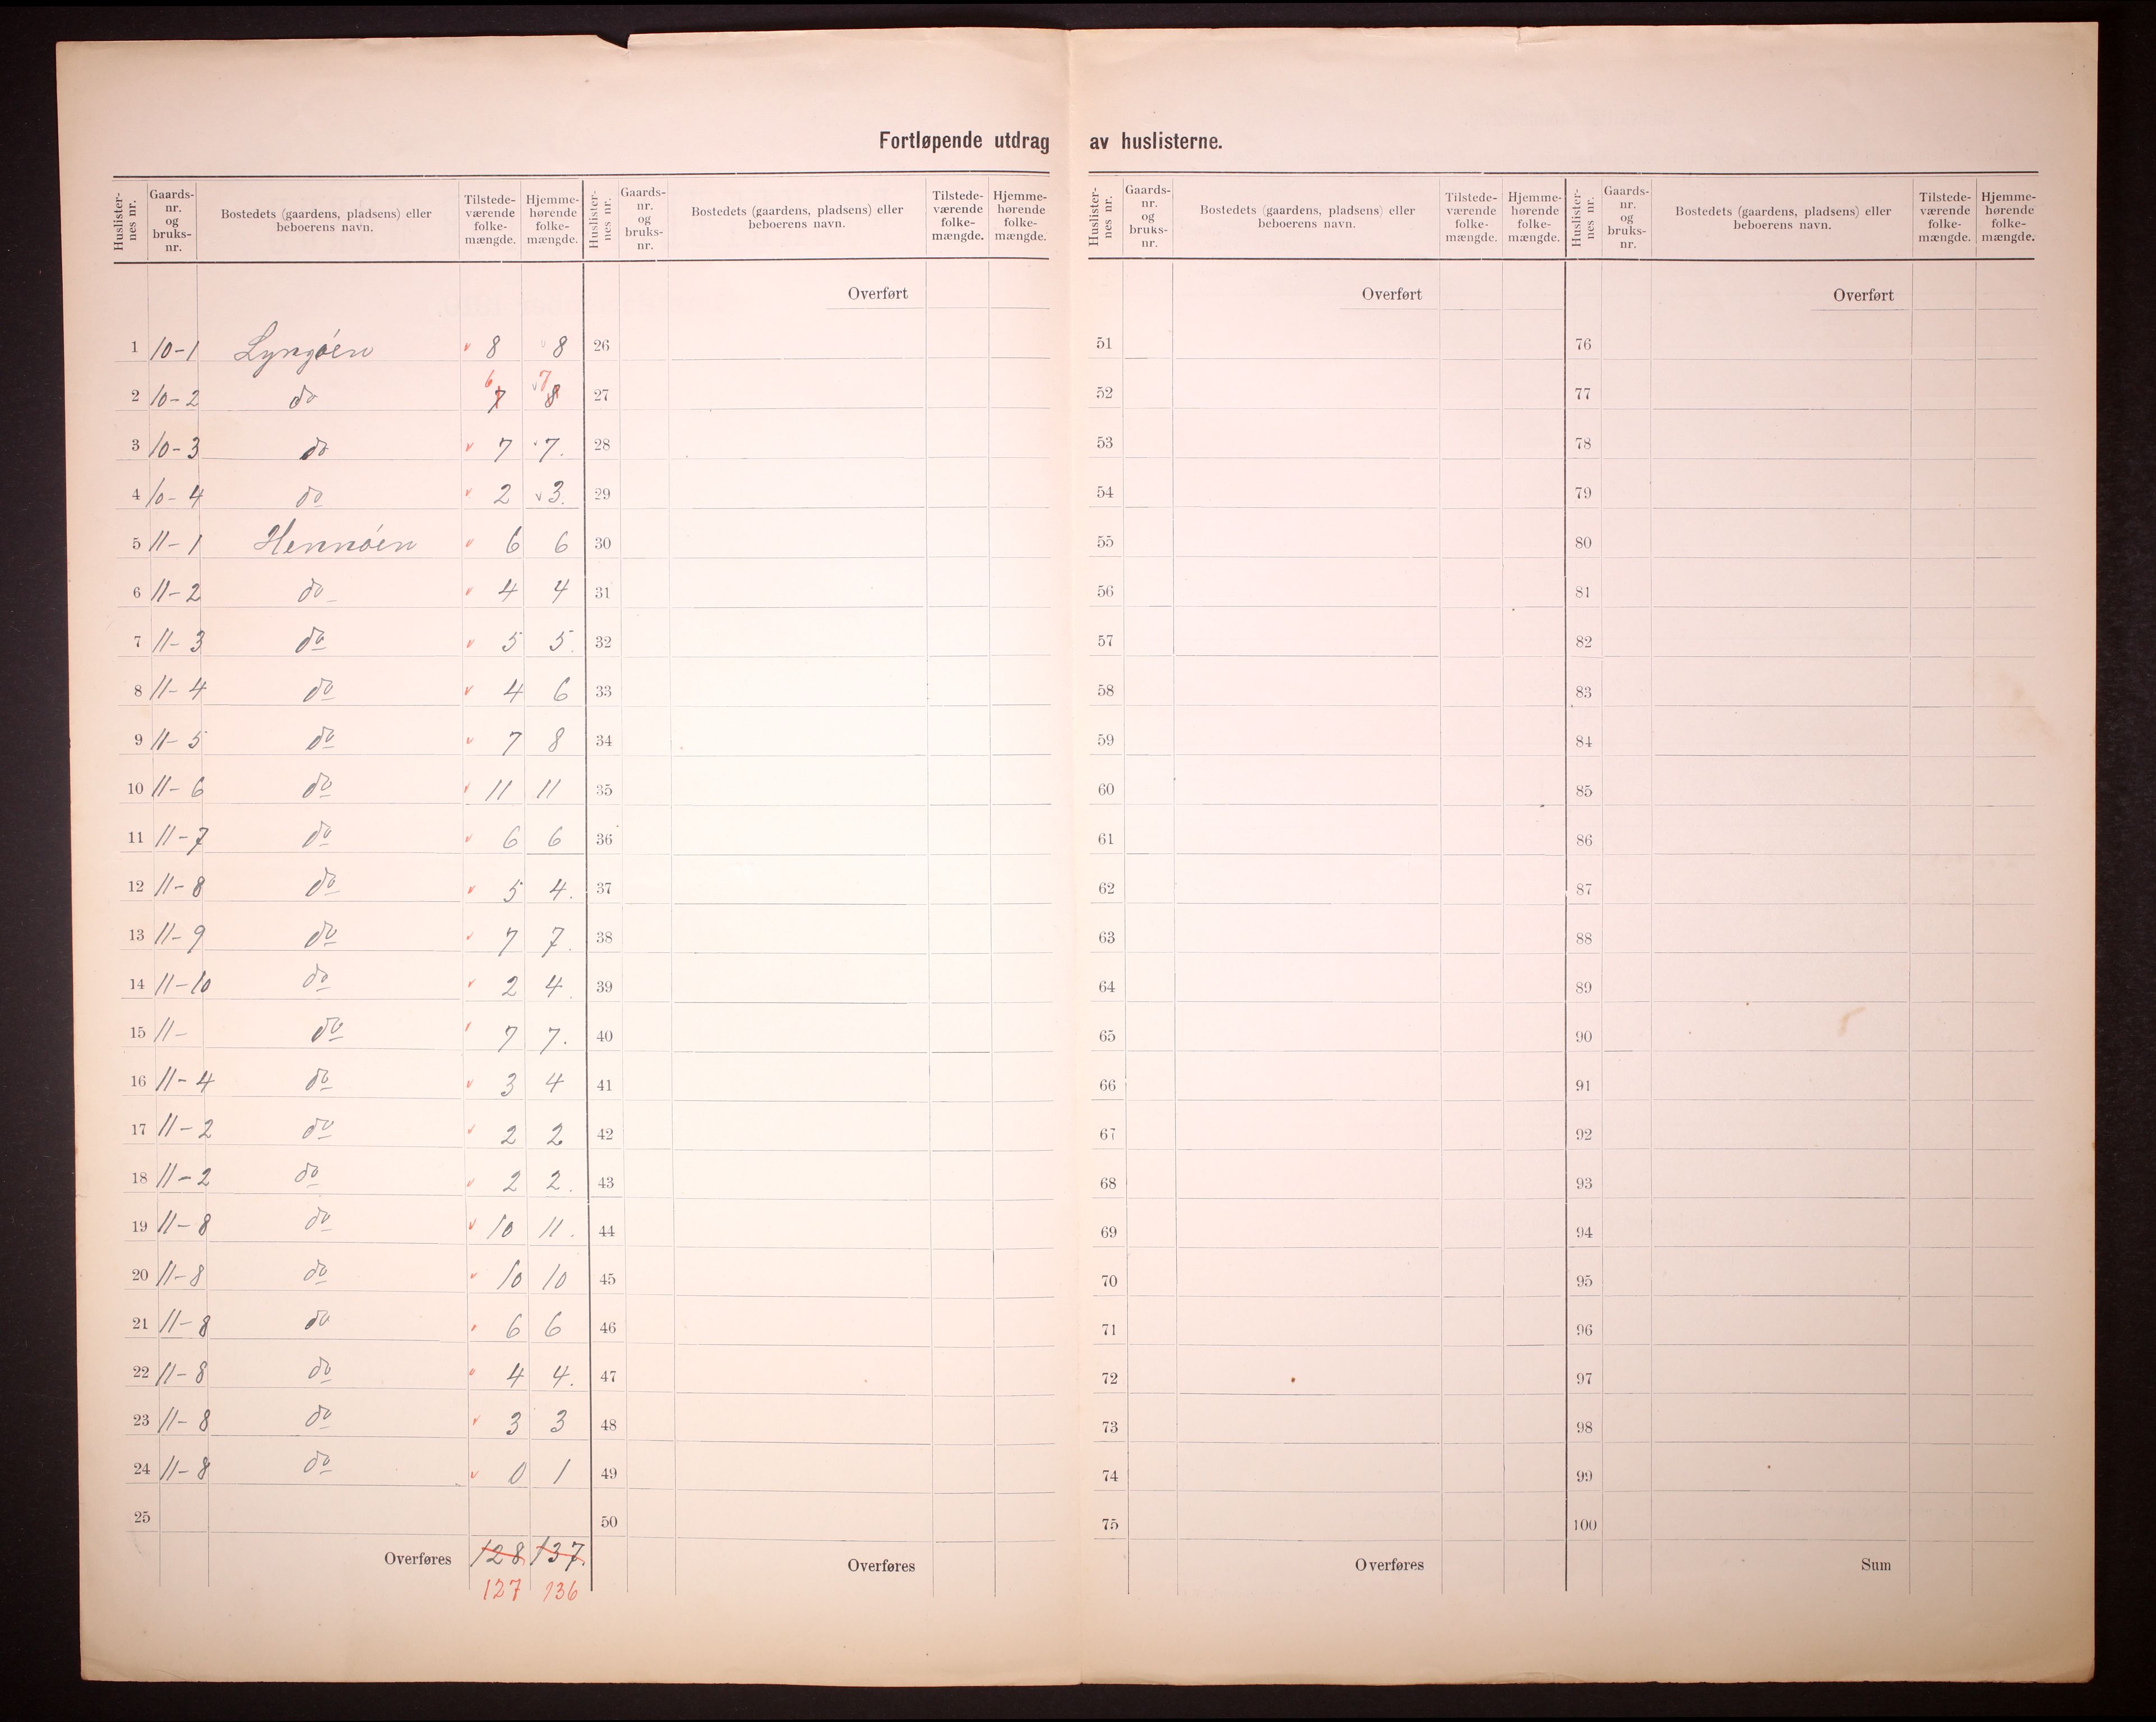 Fortløpende utdrag av huslisterne.
Huslisternes nr. Gaards-nr. og bruks-nr. Bostedets (gaardens, pladsens) eller beboerens navn. Tilstede-værende folke-mængde. Hjemme-hørende folke-mængde.
1 10-1 Lyngøen 8 8
2 10-2 do 7 6 8 7
3 10-3 do 7 7.
4 10-4 do 2 3.
5 11-1 Hennøen 6 6
6 11-2 do 4 4
7 11-3 do 5 5.
8 11-4 do 4 6
9 11-5 do 7 8
10 11-6 do 11 11
11 11-7 do 6 6
12 11-8 do 5 4.
13 11-9 do 7 7.
14 11-10 do 2 4.
15 11- do 7 7.
16 11-4 do 3 4
17 11-2 do 2 2
18 11-2 do 2 2.
19 11-8 do 10 11.
20 11-8 do 10 10
21 11-8 do 6 6
22 11-8 do 4 4.
23 11-8 do 3 3
24 11-8 do 0 1
25
Overføres 128 137
127 136
Huslisternes nr. Gaards-nr. og bruks-nr. Bostedets (gaardens, pladsens) eller beboerens navn. Tilstede-værende folke-mængde. Hjemme-hørende folke-mængde.
Overført
26
27
28
29
30
31
32
33
34
35
36
37
38
39
40
41
42
43
44
45
46
47
48
49
50
Overføres
Huslisternes nr. Gaards-nr. og bruks-nr. Bostedets (gaardens, pladsens) eller beboerens navn. Tilstede-værende folke-mængde. Hjemme-hørende folke-mængde.
Overført
51
52
53
54
55
56
57
58
59
60
61
62
63
64
65
66
67
68
69
70
71
72
73
74
75
Overføres
Huslisternes nr. Gaards-nr. og bruks-nr. Bostedets (gaardens, pladsens) eller beboerens navn. Tilstede-værende folke-mængde. Hjemme-hørende folke-mængde.
Overført
76
77
78
79
80
81
82
83
84
85
86
87
88
89
90
91
92
93
94
95
96
97
98
99
100
Sum